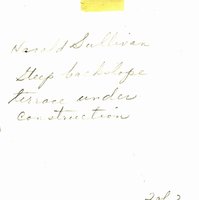 Harold Sullivan
Steep backslope
terrace under
construction